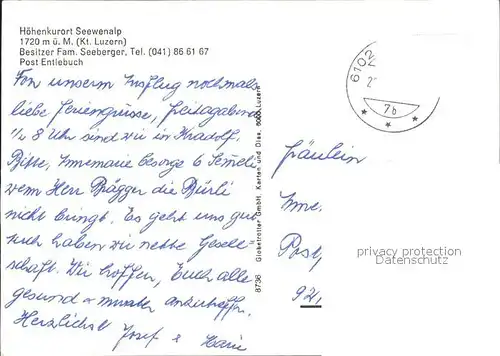 Höhenkurort Seewenalp
1720 m ü. M. (Kt. Luzern)
Besitzer Fam. Seeberger, Tel. (041) 86 61 67
Post Entlebuch
Von unserm Ausflug nochmals
liebe Feriengrüsse, Freitagabend
½ 8 Uhr sind wir in Kradolf,
Bitte, Annemarie besorge 6 Semeli
wenn Herr Brägger die Bürli
nicht bringt. Es geht uns gut
auch haben wir nette Gesell-
schaft. Wir hoffen, Euch alle
gesund & munter anzutreffen.
Herzlichst Josef &
8736 Globetrotter GmbH, Karten und Dias, 6000 Luzern
6102
7b
Fräulein
Anne
Post
92
privacy protection
Datenschutz